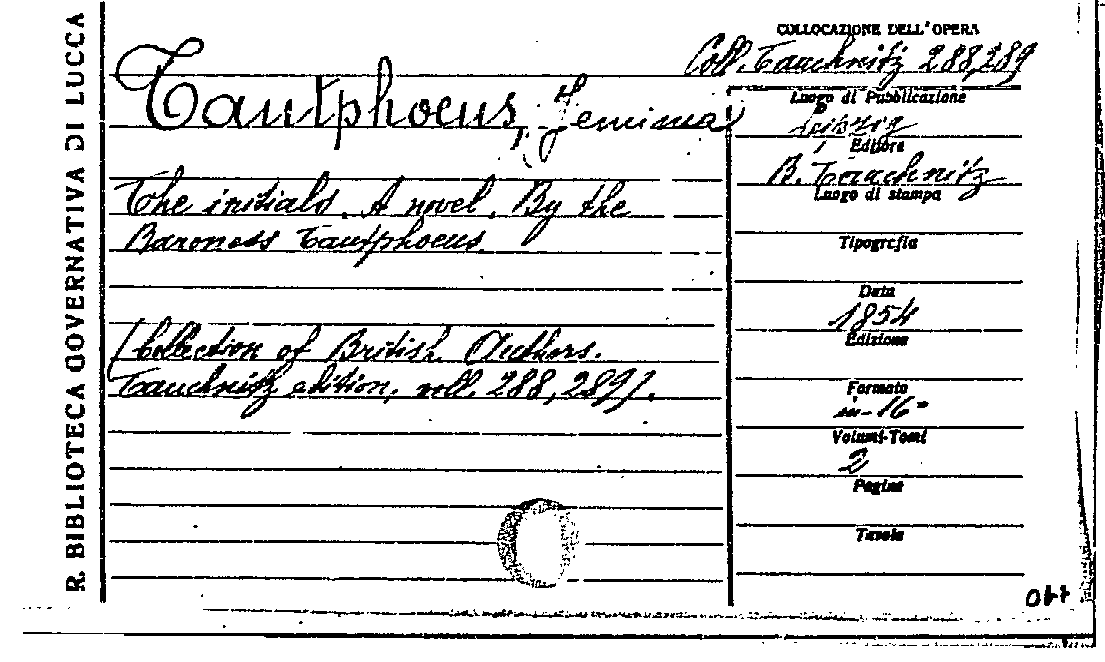 R. BIBLIOTECA GOVERNATIVA DI LUCCA
Tautphoeus, Jemima
The initials. A novel. By the
Baroness Tautphoeus.
(Collection of British Authors.
Tauchnitz edition, voll. 288, 289).
COLLOCAZIONE DELL'OPERA
Coll. Tauchnitz 288,289
Luogo di Pubblicazione
Leipzig
Editore
B. Tauchnitz
Luogo di stampa
Tipografia
Data
1854
Edizione
Formato
in-16°
Volumi-Tomi
2
Pagine
Tavole